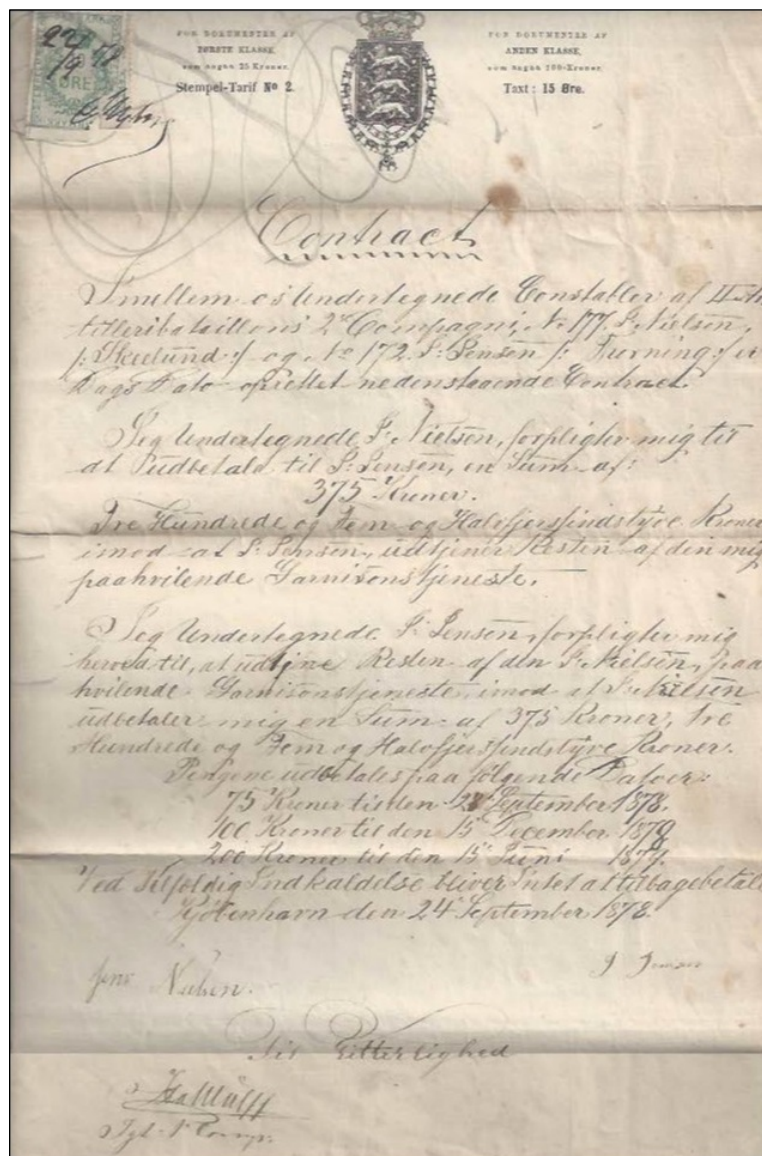 22/9 78
ØRE
FOR DOKUMENTER AF
FØRSTE KLASSE,
som angaa 25 Kroner.
Stempel-Tarif No 2.
FOR DOKUMENTER AF
ANDEN KLASSE,
som angaa 100 Kroner.
Taxt: 15 Øre.
Contract
Imellem os Undertegnede Constabler af II
tilleribataillons 2den Compagni, No 177. J. Nielsen,
/: Skelund :/ og No 172. J. Jensen /: Tvorning :/ er
Dags Dato oprettet nedenstaaende Contract.
Jeg Undertegnede J. Nielsen, forpligter mig til
at udbetale til J. Jensen, en Sum af:
375 Kroner.
Tre Hundrede og Fem og Halvfjersindstyve Kroner
imod at J. Jensen, udtjener Resten af den mig
paahvilende Garnisonstjeneste.
Jeg Undertegnede J. Jensen, forpligter mig
herved til, at udtjene Resten af den J. Nielsen, paa
hvilende Garnisonstjeneste, imod at J. Nielsen
udbetaler mig en Sum af 375 Kroner, Tre
Hundrede og Fem og Halvfjersindstyve Kroner.
Pengene udbetales paa følgende Datoer:
75 Kroner til den September 1878.
100 Kroner til den 15de December 1878
200 Kroner til den 15de Juni 1879.
Ved Indkaldelse bliver Intet at tilbagebetale
Kjøbenhavn den 24de September 1878.
J Jensen
Jens Nielsen.
Til Vitterlighed